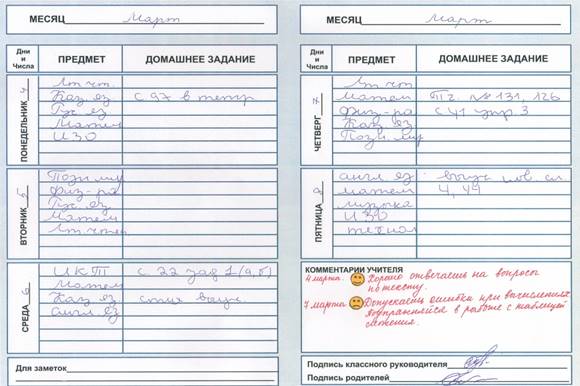 МЕСЯЦ Март
Дни и Числа ПРЕДМЕТ ДОМАШНЕЕ ЗАДАНИЕ
ПОНЕДЕЛЬНИК
Лит. чт.
Каз. яз с 97 в тетр
Рус. яз
Матем
ИЗО
ВТОРНИК
Позн. мир
Физ-ра
Рус. яз.
Матем
Лит. чтен
СРЕДА 6
ИКТ с 22 зад 1 (а, б)
Матем
Каз. яз выуч.
англ. яз
Для заметок
МЕСЯЦ Март
Дни и Числа ПРЕДМЕТ ДОМАШНЕЕ ЗАДАНИЕ
ЧЕТВЕРГ 7
Лит. чт.
Матем Тг. № 131, 126
Физ-ра с 41 упр 3
Каз. яз
Позн. мир
ПЯТНИЦА
англ. яз. выуч. нов. сл
матем 4, 49
музыка
ИЗО
технол
КОММЕНТАРИИ УЧИТЕЛЯ
4 марта. Хорошо отвечаешь на вопросы
по тексту.
7 марта. Допускаешь ошибки при вычислениях.
Поупражняйся в работе с таблицей
умножения.
Подпись классного руководителя
Подпись родителей